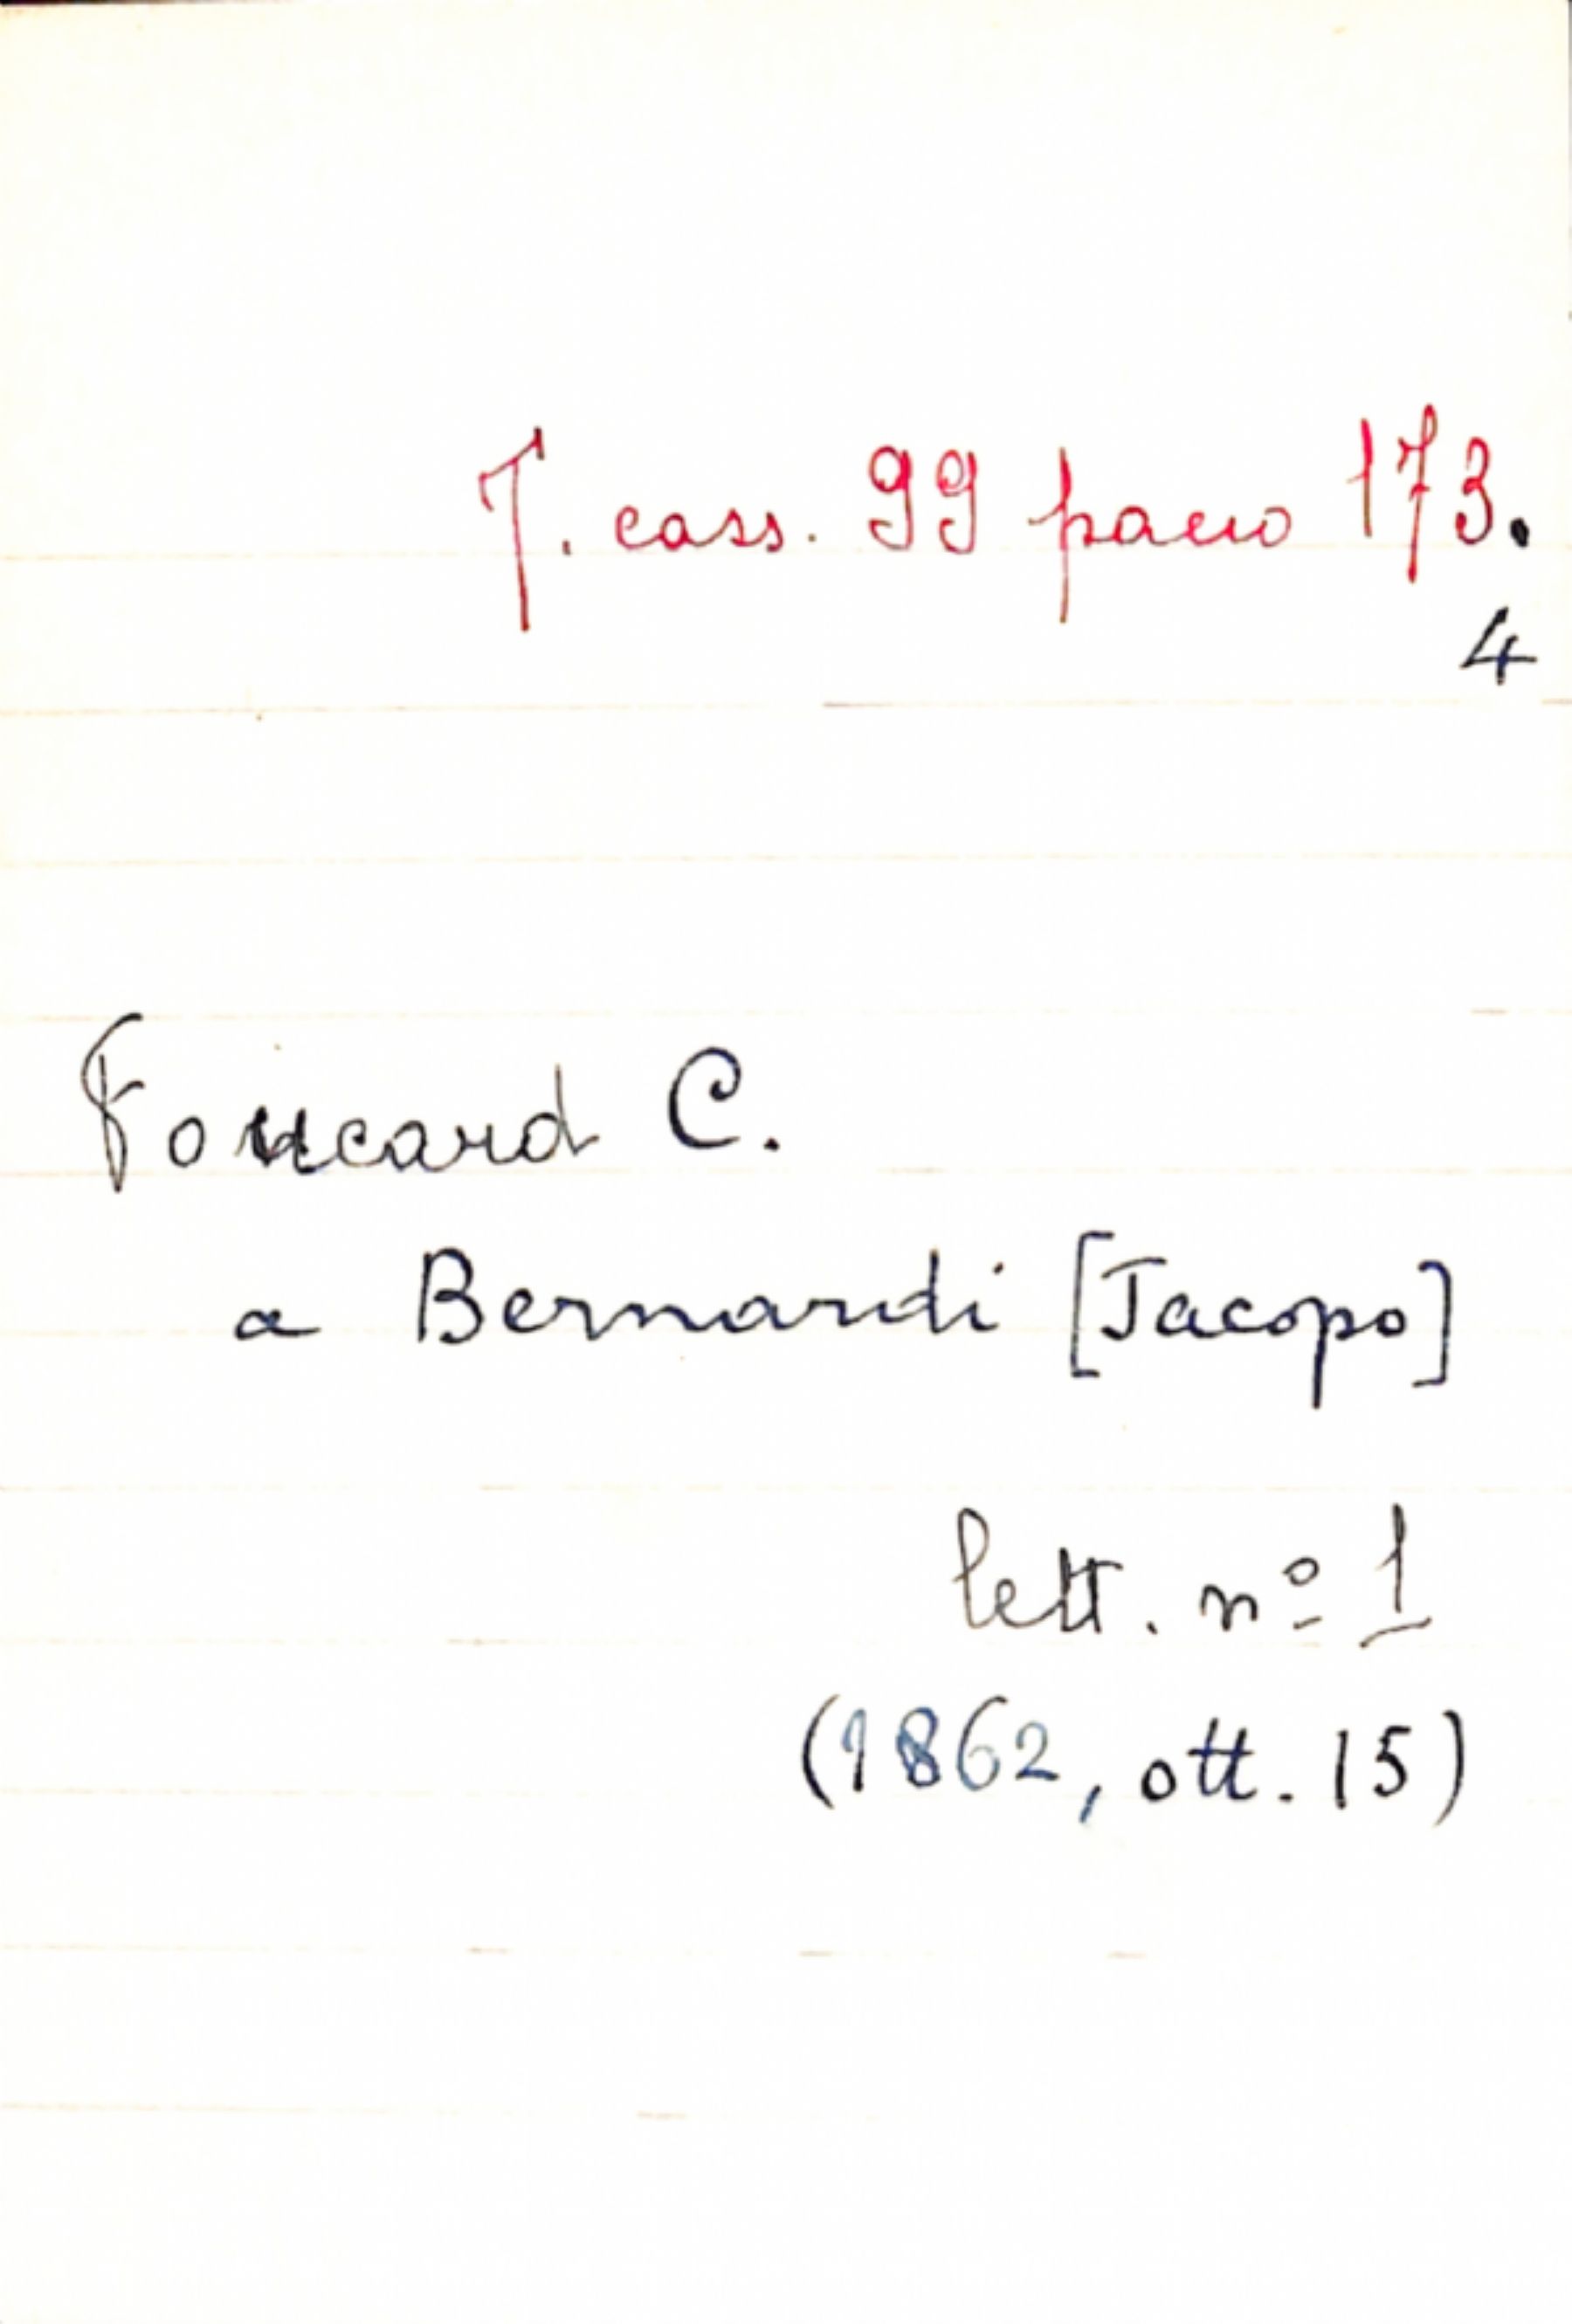 T. cass. 99 pacco 173.
4
Foucard C.
a Bernardi [Jacopo]
lett. nº 1
(1862, ott. 15)